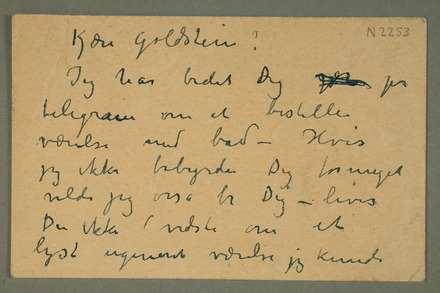 N2253
Kære Goldstein!
Jeg har bedet Dig pr
telegram om at bestille
værelse med bad – Hvis
jeg ikke bebyrder Dig for meget
vilde jeg ossa be Dig – hvis
Du ikke vidste om et
lyst ugenert værelse jeg kunde